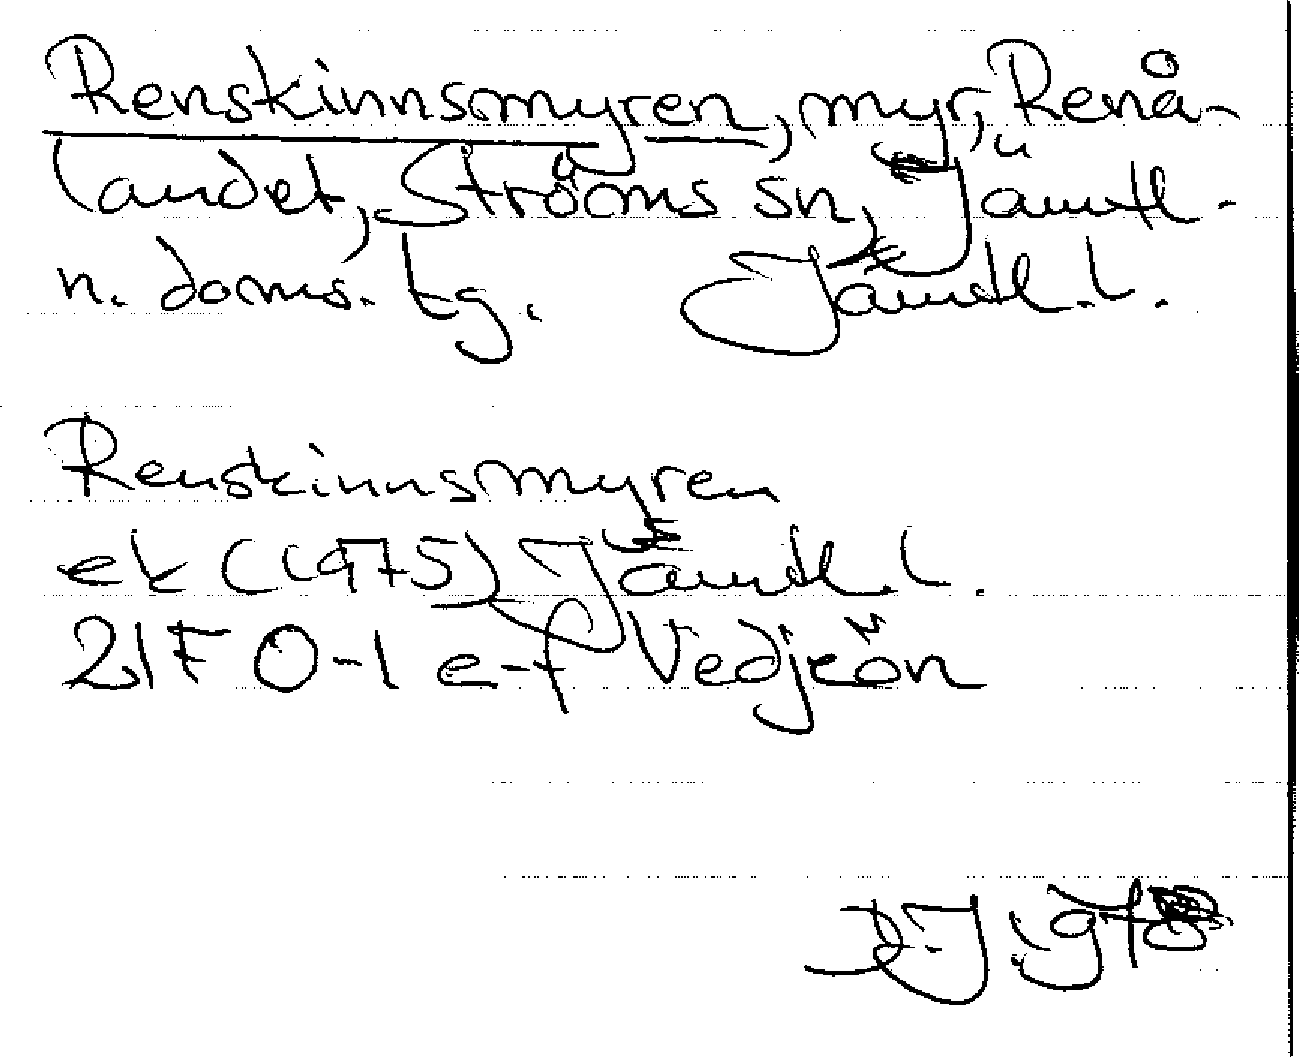 Renskinnsmyren, myr, Renå-
landet, Ströms sn, Jämtl.
n. doms. tg. Jämtl. l.
Renskinnsmyren
ek (1975) Jämtl. l.
21F 0-1 e-f Vedjeön